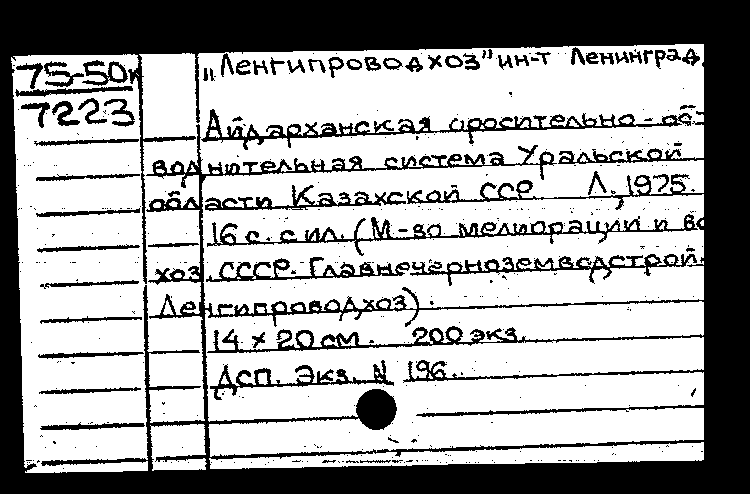 75-50к
7223
„Ленгипроводхоз" ин-т Ленинград.
Айдарханская оросительно-об-
воднительная система Уральской
области Казахской ССР. Л., 1975.
16 с. с ил. (М-во мелиорации и во
хоз. СССР. Главнечерноземводстрой.
Ленгипроводхоз).
14 х 20 см. 200 экз.
Дсп. Экз. N 196.